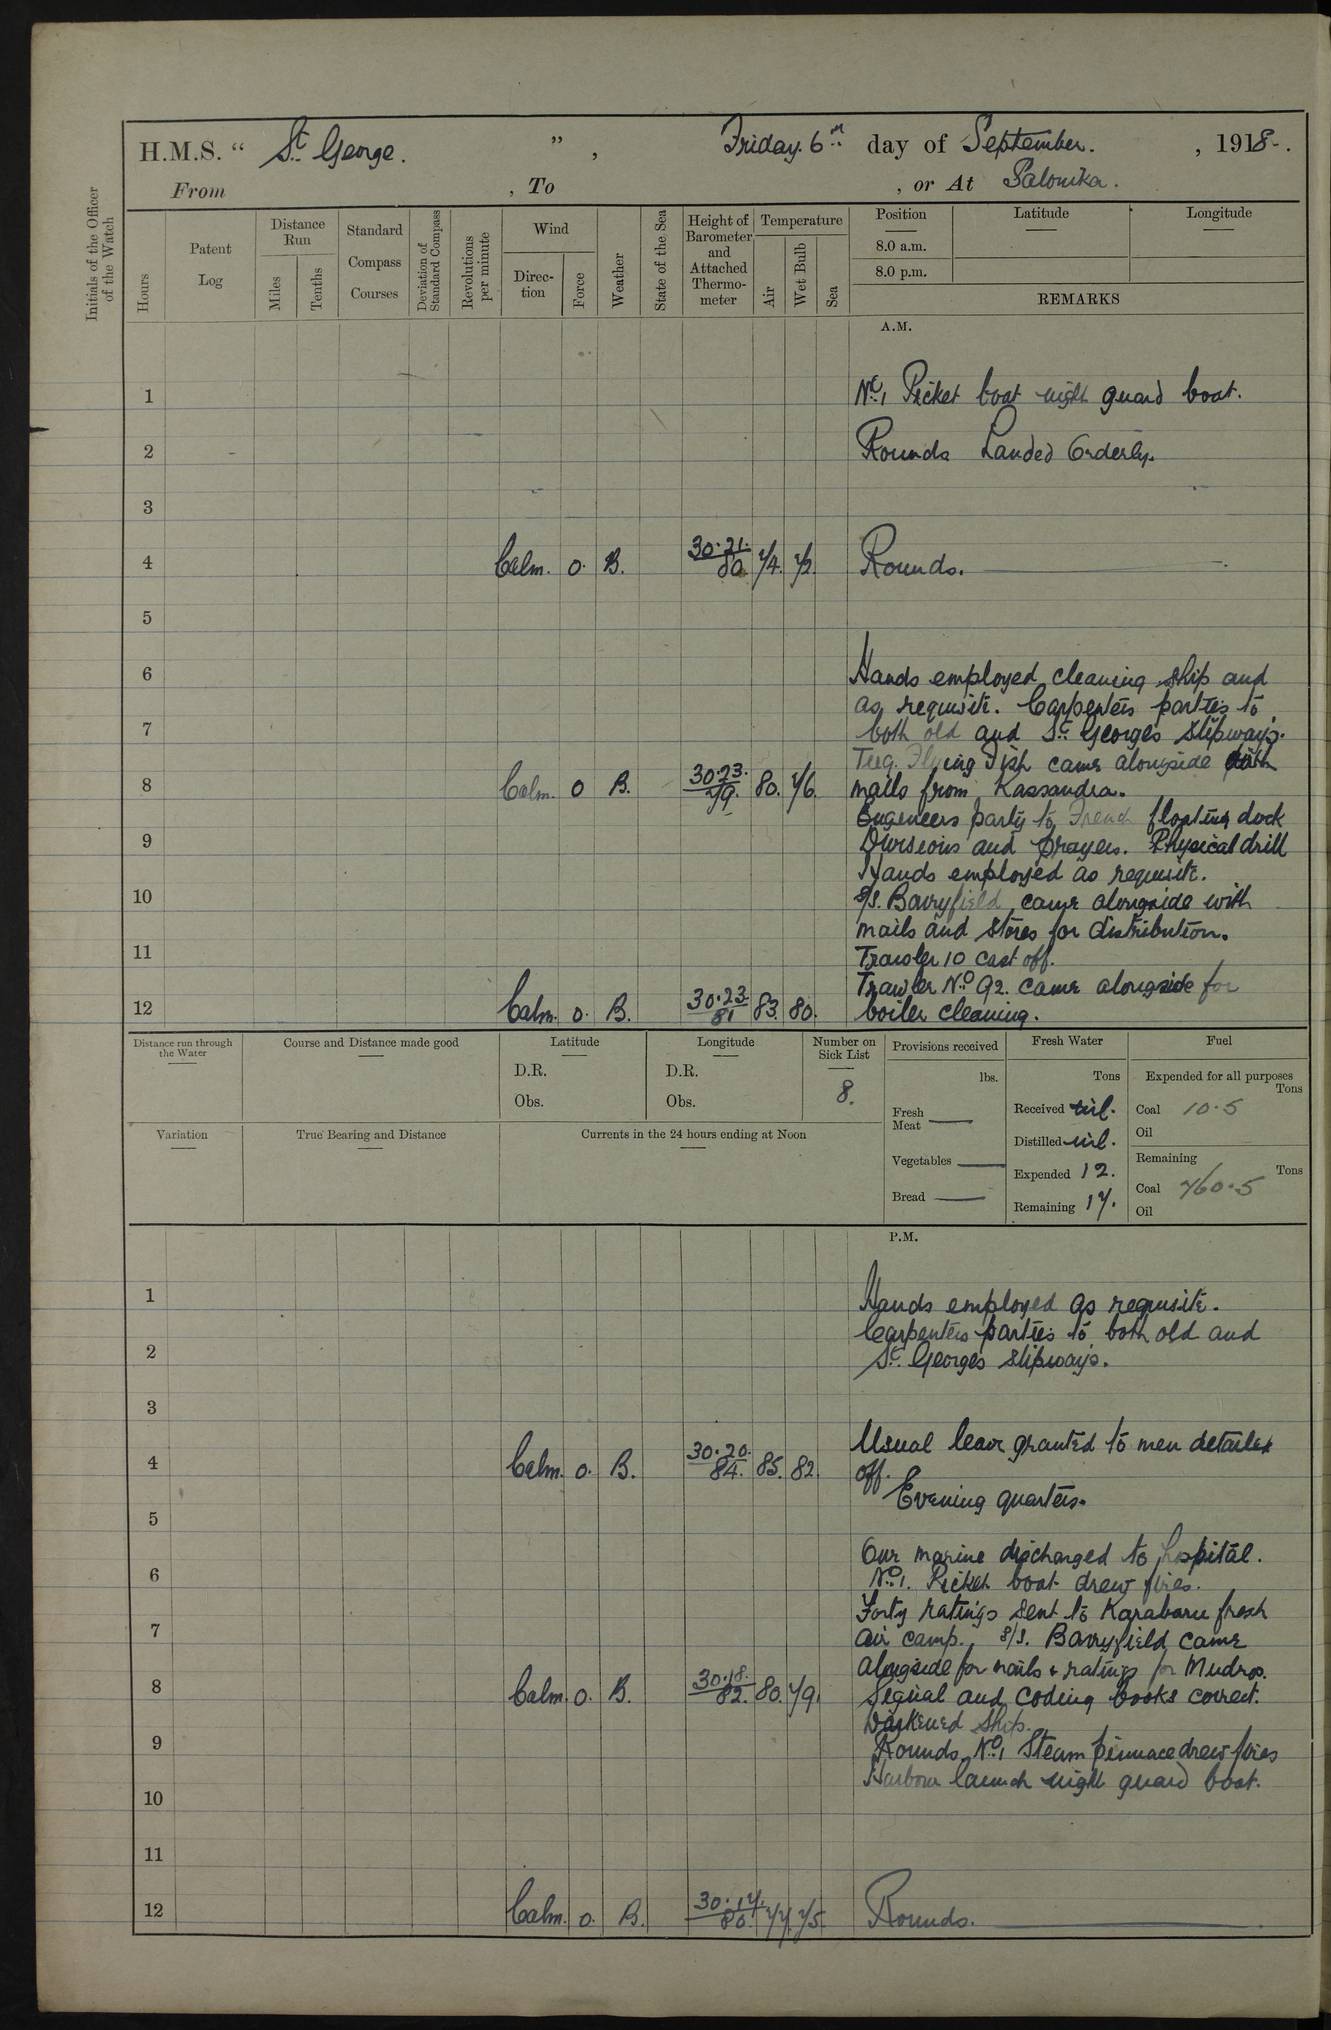 H.M.S. " St. George. ", Friday. 6th day of September. , 1918-.
From , To , or At Salonika.
Initials of the Officer of the Watch
Hours
Patent Log
Distance Run
Miles
Tenths
Standard Compass Courses
Deviation of Standard Compass
Revolutions per minute
Wind
Direc-tion
Force
Weather
State of the Sea
Height of Barometer and Attached Thermo-meter
Temperature
Air
Wet Bulb
Sea
Position Latitude Longitude
8.0 a.m.
8.0 p.m.
REMARKS
A.M.
1 No. 1 Picket boat night guard boat.
2 Rounds Landed Orderly.
3
4 Calm. 0. B. 30.21. 80. 74. 72. Rounds.
5
6 Hands employed cleaning ship and
as requisite. Carpenters parties to
7 both old and St. Georges slipways.
Tug. Flying Fish came alongside with
8 Calm. 0 B. 30.23. 79. 80. 76. mails from Kassandra.
Engineers party to French floating dock
9 Divisions and prayers. Physical drill
Hands employed as requisite.
10 S/S. Barryfield came alongside with
mails and stores for distribution.
11 Trawler 10 cast off.
Trawler No. 92. came alongside for
12 Calm. 0. B. 30.23. 81 83. 80. boiler cleaning.
Distance run through the Water
Course and Distance made good
Latitude
D.R.
Obs.
Longitude
D.R.
Obs.
Number on Sick List
8.
Provisions received
lbs.
Fresh Meat
Vegetables
Bread
Fresh Water
Tons
Received nil.
Distilled nil.
Expended 12.
Remaining 17.
Fuel
Expended for all purposes
Tons
Coal 10.5
Oil
Remaining
Tons
Coal 760.5
Oil
Variation
True Bearing and Distance
Currents in the 24 hours ending at Noon
P.M.
1 Hands employed as requisite.
Carpenters parties to both old and
2 St. Georges slipways.
3
Usual leave granted to men detailed
4 Calm. 0. B. 30.20. 84. 85. 82. off.
Evening quarters.
5
One marine discharged to hospital.
6 No. 1. Picket boat drew fires.
Forty ratings sent to Karaburu fresh
7 air camp. S/S. Barryfield came
alongside for mails & ratings for Mudros.
8 Calm. 0. B. 30.18. 82. 80. 79. Signal and Coding books correct.
Darkened ship.
9 Rounds, No. 1 Steam pinnace drew fires
Harbour launch night guard boat.
10
11
12 Calm. 0. B. 30.17. 80. 77. 75. Rounds.